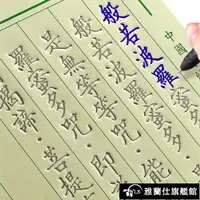 中國
般若波羅
能
是無等等咒
羅蜜多咒即
羅蜜多咒
菩提
揭諦
雅蘭仕旗艦館